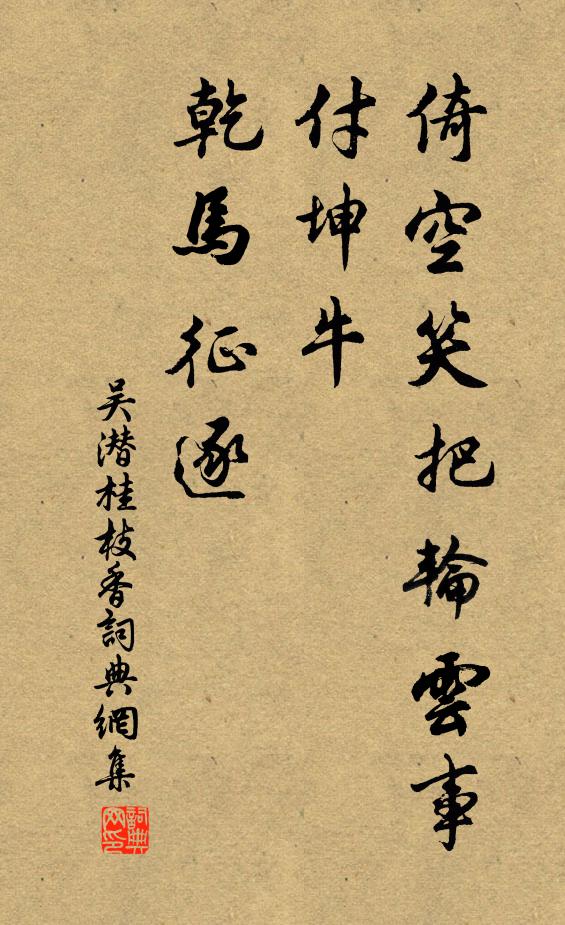 倚空笑把輪雲事
付坤牛
乾馬征逐
吴潜桂枝香詞典網集
詞典網印